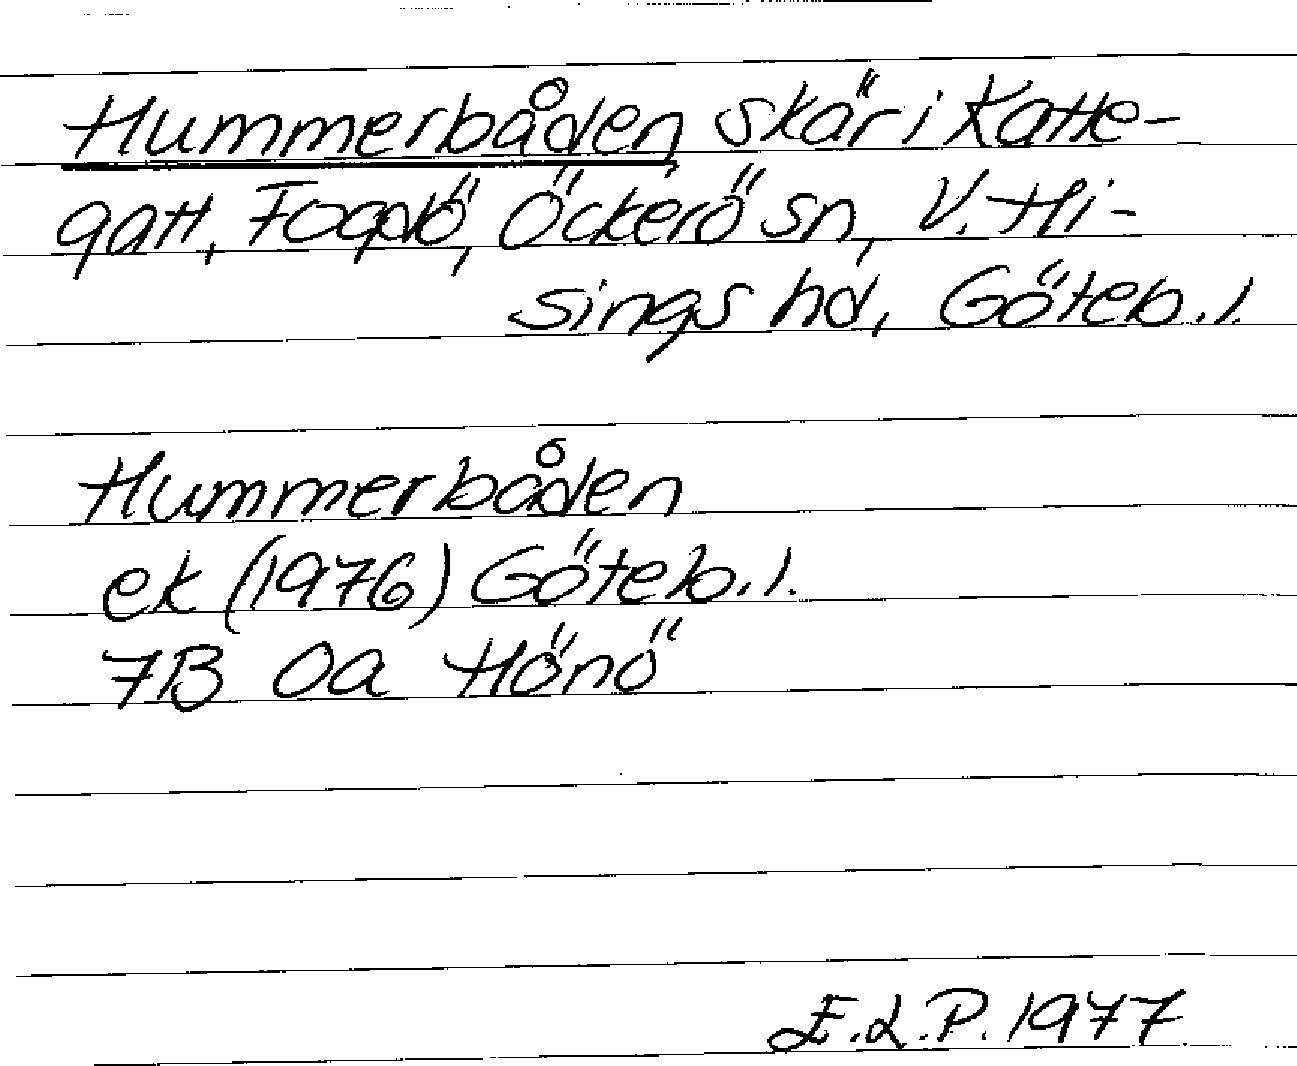 Hummerbåden skär i Katte-
gatt, Fogdö, Öckerö sn, V. Hi-
sings hd, Göteb. l.
Hummerbåden
ek (1976) Göteb. l.
7B 0a Hönö
E.L.P. 1977